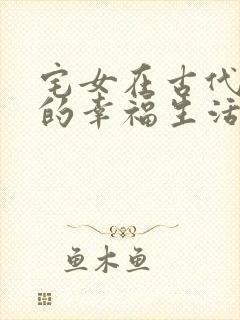 宅女在古代
的幸福生活
鱼木鱼